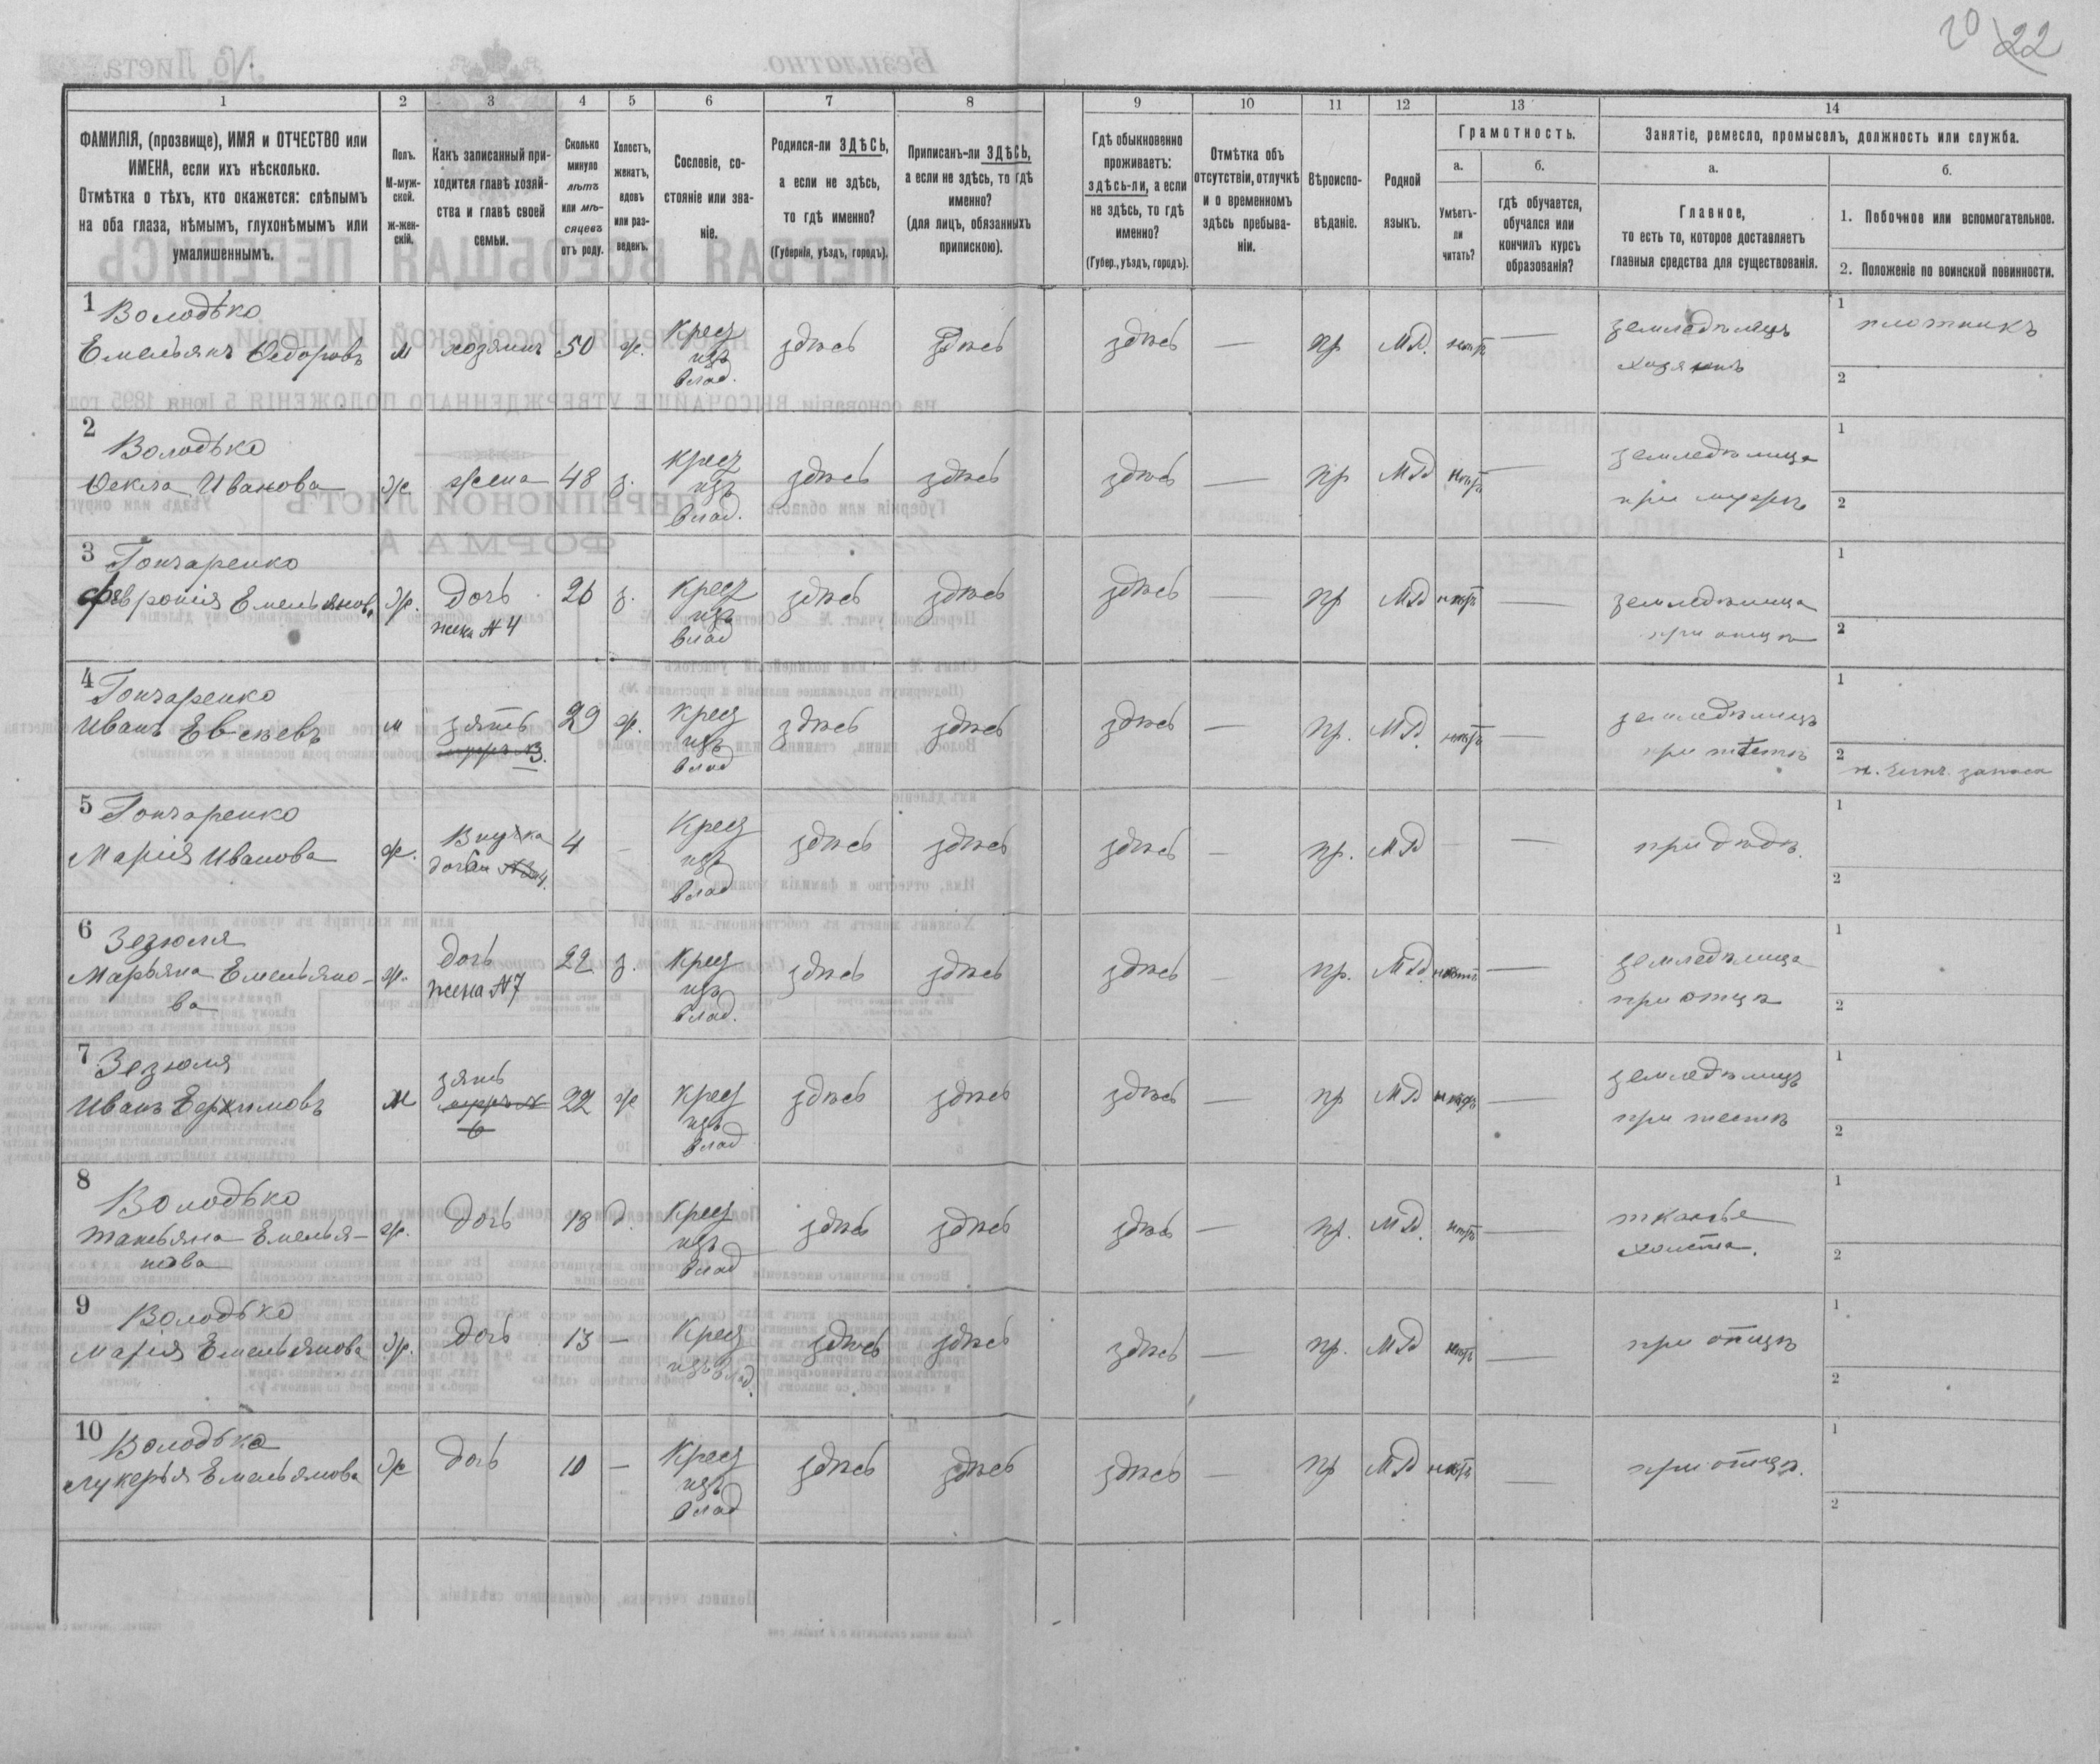 20 22
1 2 3 4 5 6 7 8 9 10 11 12 13 14
ФАМИЛІЯ, (прозвище), ИМЯ и ОТЧЕСТВО или
ИМЕНА, если ихъ нѣсколько.
Отмѣтка о тѣхъ, кто окажется: слѣпымъ
на оба глаза, нѣмымъ, глухонѣмымъ или
умалишеннымъ.
Полъ.
М-муж-
ской.
ж-жен-
скій.
Какъ записанный при-
ходится главѣ хозяй-
ства и главѣ своей
семьи.
Сколько
минуло
лѣтъ
или мѣ-
сяцевъ
отъ роду.
Холостъ,
женатъ,
вдовъ
или раз-
веденъ.
Сословіе, со-
стояніе или зва-
ніе.
Родился-ли ЗДѢСЬ,
а если не здѣсь,
то гдѣ именно?
(Губернія, уѣздъ, городъ).
Приписанъ-ли ЗДѢСЬ,
а если не здѣсь, то гдѣ
именно?
(для лицъ, обязанныхъ
припискою).
Гдѣ обыкновенно
проживаетъ:
здѣсь-ли, а если
не здѣсь, то гдѣ
именно?
(Губер., уѣздъ, городъ).
Отмѣтка объ
отсутствіи, отлучкѣ
и о временномъ
здѣсь пребыва-
ніи.
Вѣроиспо-
вѣданіе.
Родной
языкъ.
Грамотность.
а.
Умѣетъ-
ли
читать?
б.
гдѣ обучается,
обучался или
кончилъ курсъ
образованія?
Занятіе, ремесло, промыселъ, должность или служба.
а.
Главное,
то есть то, которое доставляетъ
главныя средства для существованія.
б.
1. Побочное или вспомогательное.
2. Положеніе по воинской повинности.
1 Володько
Емельянъ Ѳедоровъ м хозяинъ 50 ж. Крес изъ влад. здѣсь здѣсь здѣсь — пр МР. нѣтъ — земледѣлецъ хозяинъ 1 плотникъ
2
2 Володько
Ѳекла Иванова ж жена 48 з. крес изъ влад. здѣсь здѣсь здѣсь — пр МР нѣтъ — земледѣлица при мужѣ 1
2
3 Гончаренко
Февронія Емельянова ж. дочь жена N 4 26 з. крес изъ влад здѣсь здѣсь здѣсь — пр МР нѣтъ — земледѣлица при отцѣ 1
2
4 Гончаренко
Иванъ Евсѣевъ м зять 3. 29 ж. крес изъ влад здѣсь здѣсь здѣсь — пр. МР. нѣтъ — земледѣлецъ при тестѣ 1
2 н. чинъ запаса
5 Гончаренко
Марія Иванова ж. Внучка дочь 4. 4 — Крес изъ влад здѣсь здѣсь здѣсь — пр. МР — — при дѣдѣ. 1
2
6 Зезюля
Марьяна Емельяно-
ва ж. дочь жена N 7 22 з. Крес изъ влад. здѣсь здѣсь здѣсь — пр. МР. нѣтъ — земледѣлица при отцѣ 1
2
7 Зезюля
Иванъ Ефимовъ м зять 6 22 ж крес изъ влад здѣсь здѣсь здѣсь — пр МР нѣтъ — земледѣлецъ при тестѣ 1
2
8 Володько
Татьяна Емелья-
нова ж. дочь 18 д. крес изъ влад здѣсь здѣсь здѣсь — пр. МР. нѣтъ — тканьье холста. 1
2
9 Володько
Марія Емельянова ж. дочь 13 — Крес изъ влад. здѣсь здѣсь здѣсь — пр. МР нѣтъ — при отцѣ 1
2
10 Володько
Лукерья Емельянова ж дочь 10 — Крес изъ влад здѣсь здѣсь здѣсь — пр МР нѣтъ — при отцѣ. 1
2